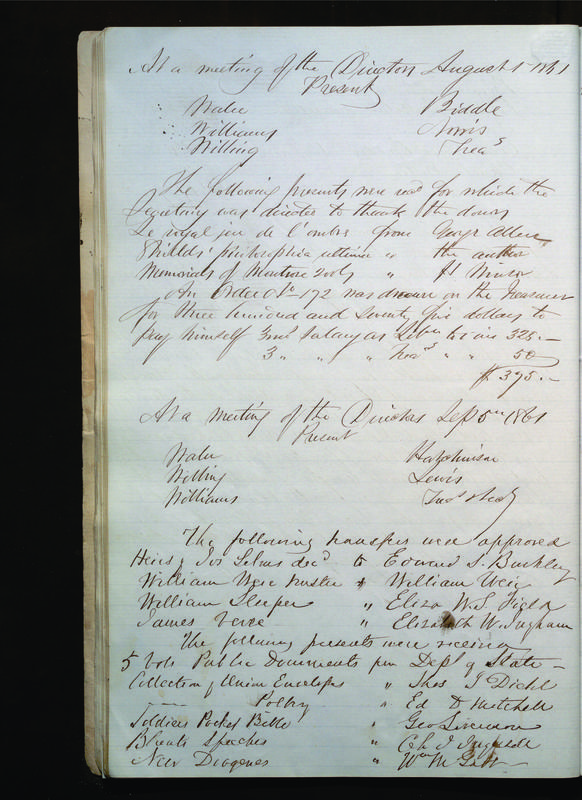 At a meeting of the Directors August 1 1861
Present
Biddle
Williams Norris
Willing Treas
The following presents were recd for which the
Secretary was directed to thank the donors
Le royal jeu de l'ombre from George Allen
Shields' philosophia ultima " the author
Memorials of Montrose 2 vols " 
An Order No 172 was drawn on the Treasurer
for three hundred and seventy five dollars to
pay himself 3 mos salary as Librarian 325.—
3 " " " Treas " " 50
$ 375.—
At a meeting of the Directors Sep 5th 1861
Present
Hutchinson
Willing Lewis
Williams Treas & Secy
The following transfers were approved
Heirs of Jos decd to Edward S. Buckley
William Weir trustee to William Weir
William Sleeper " Eliza W. S. Field
James " Elizabeth W. Ingham
The following presents were received
5 vols Public Documents from Dept of State —
Collection of Union Envelopes " Thos J Diehl
Poetry " Ed D Mitchell
Soldiers Pocket Bible " Geo Livermore
Speeches " C J Ingersoll
New Diogenes " Wm M